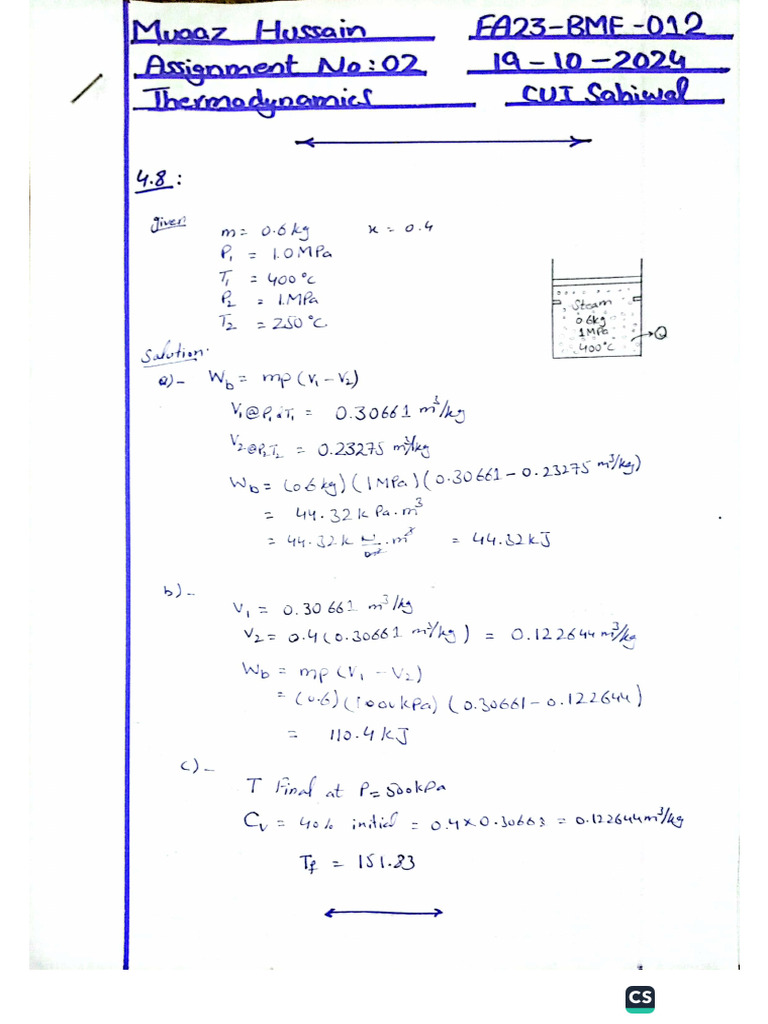 Muaaz Hussain FA23-BME-012
Assignment No:02 19-10-2024
Thermodynamics CUI Sahiwal
4.8:
given m = 0.6kg x = 0.4
P₁ = 1.0MPa
T₁ = 400°c
P₂ = 1.MPa
T₂ = 250°c
Steam
0.6kg
1MPa
400°c
Q
Solution:
a)- W_b = mp(V₁-V₂)
V₁@P₁&T₁ = 0.30661 m³/kg
V₂@P₂T₂ = 0.23275 m³/kg
W_b = (0.6kg)(1MPa)(0.30661-0.23275 m³/kg)
= 44.32k Pa.m³
= 44.32k N/m².m³ = 44.32kJ
b)-
V₁ = 0.30661 m³/kg
V₂ = 0.4(0.30661 m³/kg) = 0.122644m³/kg
W_b = mp(V₁-V₂)
= (0.6)(1000kPa)(0.30661-0.122644)
= 110.4kJ
c)-
T final at P=500kPa
C_v = 40% initial = 0.4×0.30663 = 0.122644m³/kg
T_f = 151.83
CS